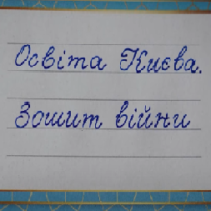 Освіта Києва.
Зошит війни